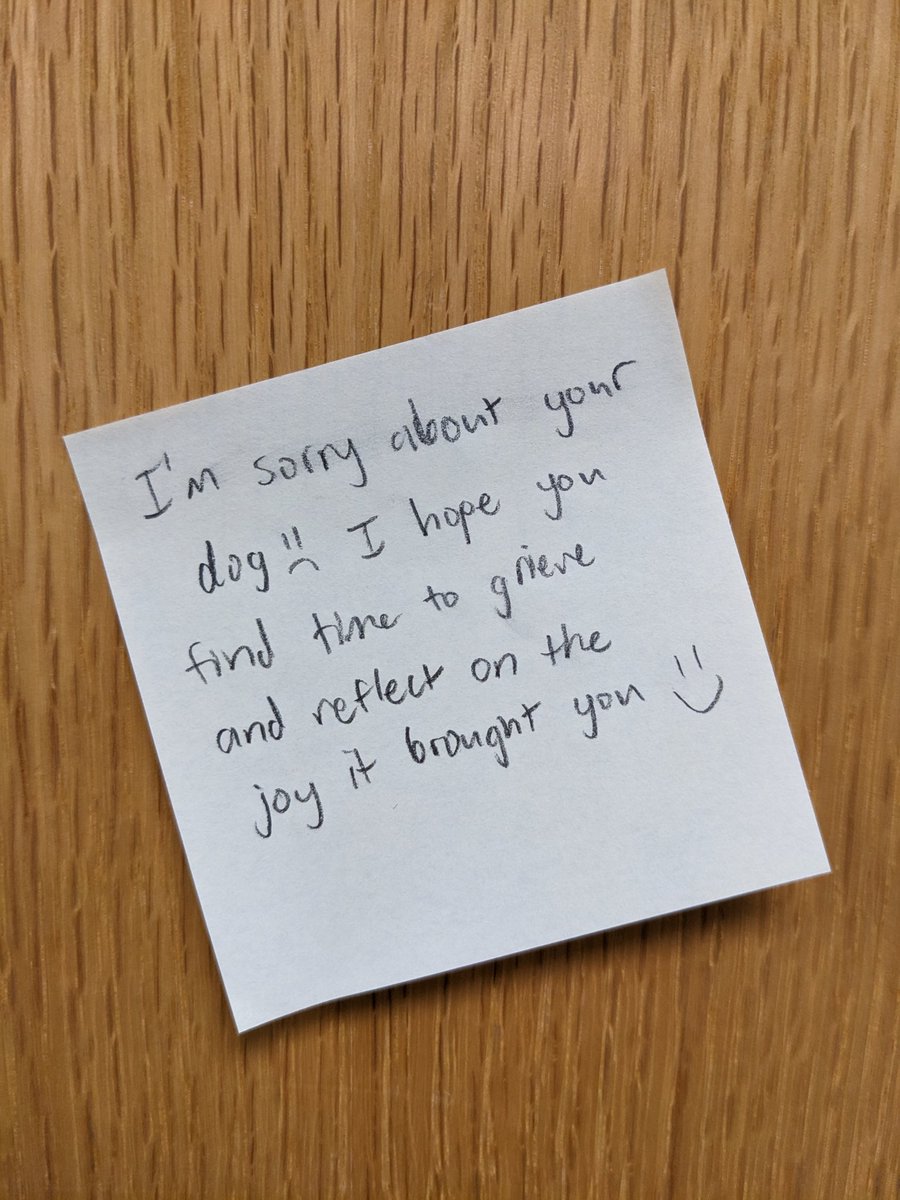 I'm sorry about your
dog :( I hope you
find time to grieve
and reflect on the
joy it brought you :)